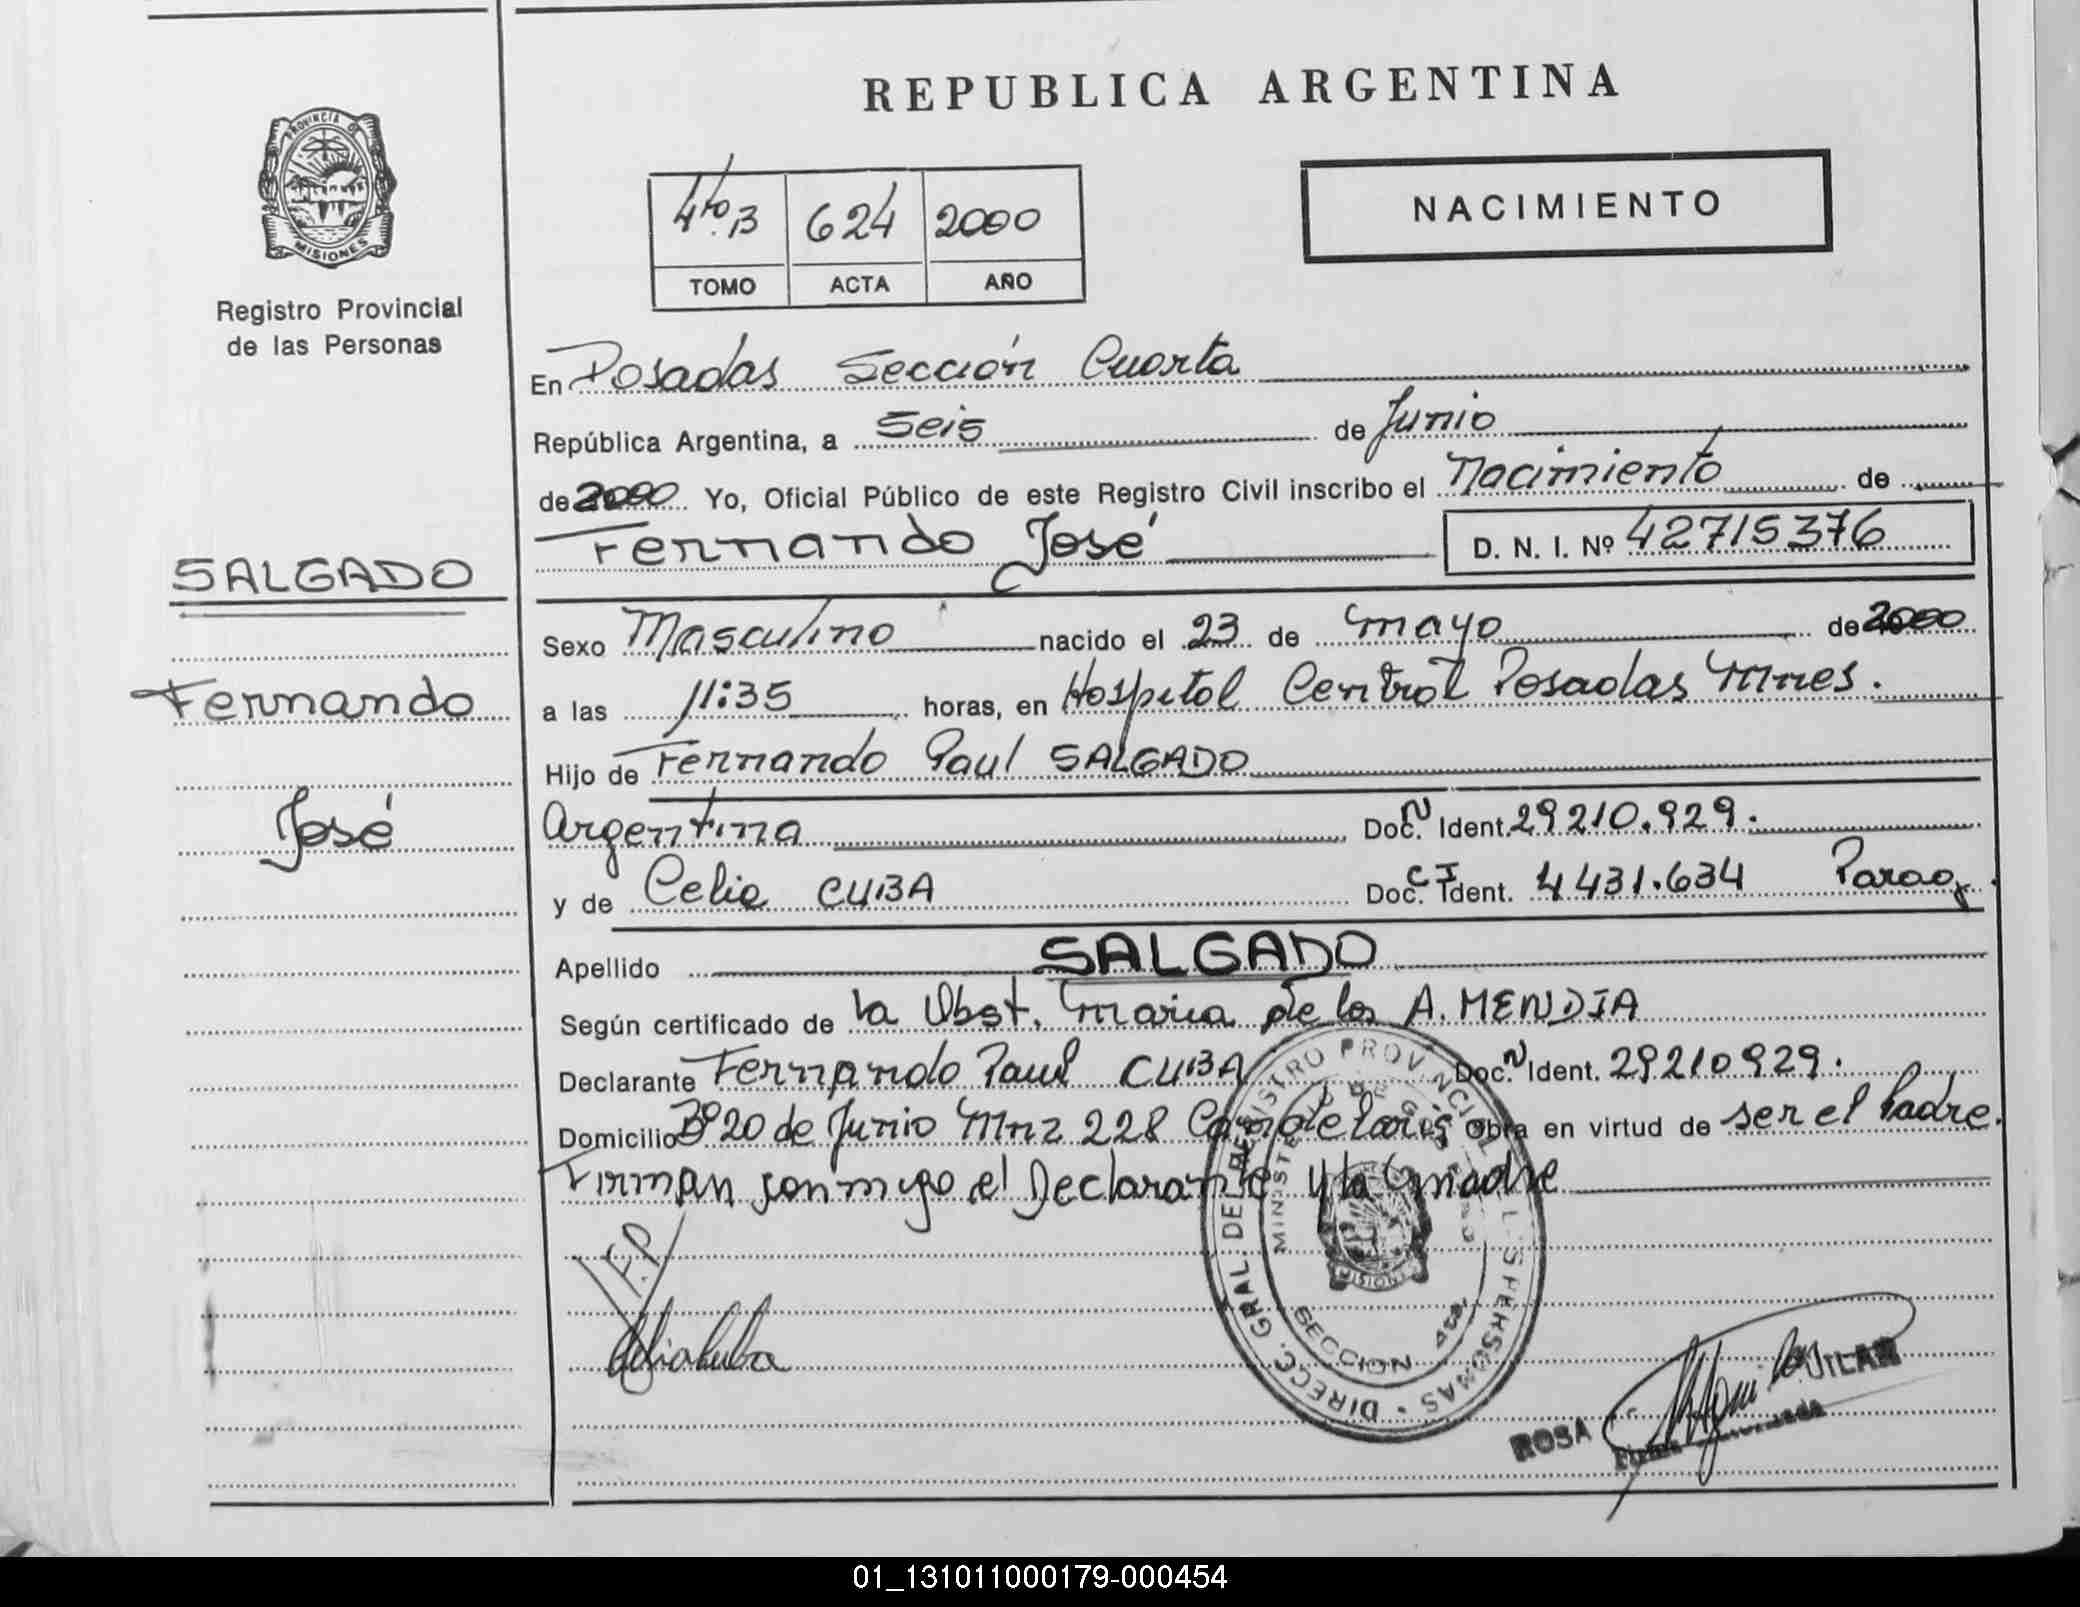 REPUBLICA ARGENTINA
PROVINCIA DE
MISIONES
Registro Provincial
de las Personas
4to. B 624 2000
TOMO ACTA AÑO
NACIMIENTO
En Posadas Sección Cuarta
República Argentina, a Seis de Junio
de 2000 Yo, Oficial Público de este Registro Civil inscribo el Nacimiento de
Fernando José D. N. I. Nº 42715376
SALGADO
Sexo Masculino nacido el 23 de mayo de 2000
Fernando
a las 11:35 horas, en Hospital Central Posadas Mnes.
Hijo de Fernando Paul SALGADO
José
Argentina Doc. N Ident. 29210.929.
y de Celia CUBA Doc. C I Ident. 4431.634 Parag.
Apellido SALGADO
Según certificado de la Obst. Maria de los A. MENDIA
Declarante Fernando Paul CUBA Doc. N Ident. 29210929.
Domicilio Bº 20 de Junio Mnz 228 Candelaria Obra en virtud de ser el Padre.
Firman conmigo el Declarante y la madre
DIRECC. GRAL. DEL REGISTRO PROVINCIAL DE LAS PERSONAS
MINISTERIO DE GOBIERNO
MISIONES
SECCION 4ta.
F.P.
Celia Cuba
ROSA AGUILAR
Firma Autorizada
01_131011000179-000454